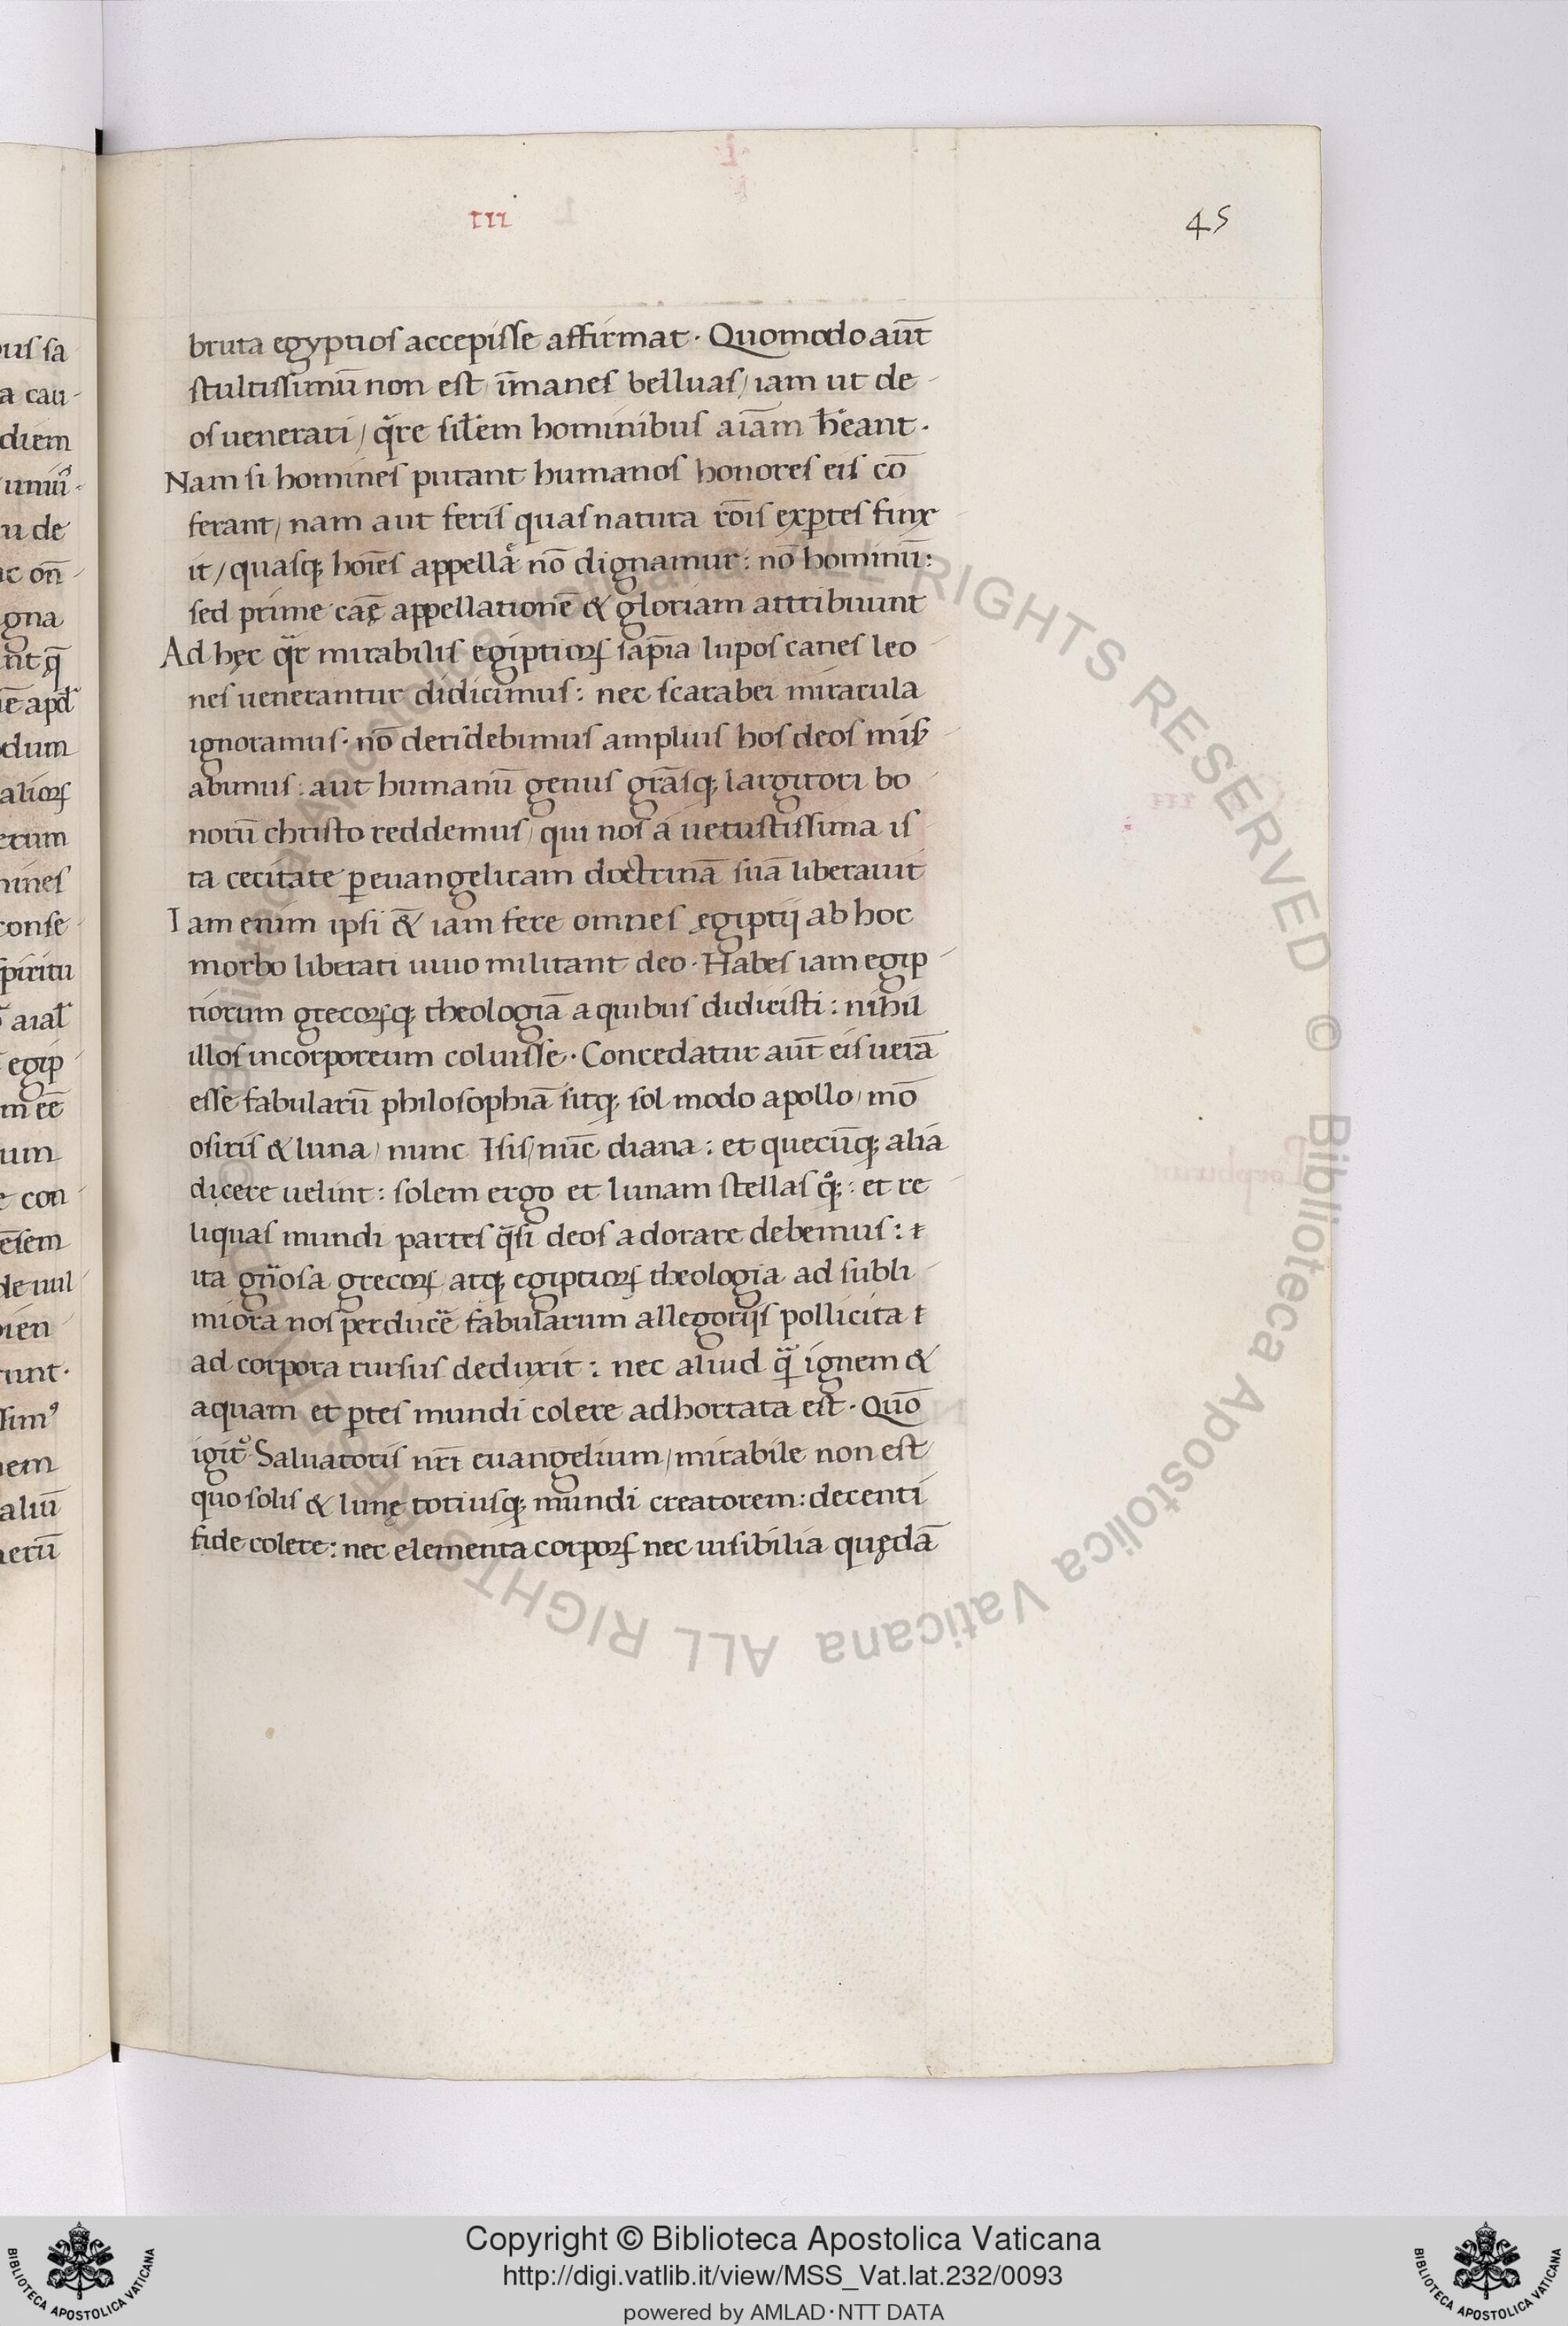 III
45
bruta egyptios accepisse affirmat · Quomodo aūt
stultissimū non est / īmanes belluas / iam ut de
os uenerari / q̄re sil̄em hominibus aīam h̄eant ·
Nam si homines putant humanos honores eis cō
ferant / nam aut feris quas natura rōis exꝑtes finx
it / quasq; hoīes appellar̄ nō dignamur : nō hominū :
sed prime caē appellationē & gloriam attribuunt
Ad hęc mirabilis egiptioꝝ sap̄ia lupos canes leo
nes uenerantur didicimus : nec scarabei miracula
ignoramus · nō deridebimus amplius hos deos
abimus : aut humanū genus grāsq; largitori bo
norū christo reddemus / qui nos a uetustissima is
ta cecitate ꝑ euangelicam doctrinā suā liberauit
Iam enim ipsi & iam fere omnes egiptij ab hoc
morbo liberati uiuo militant deo · Habes iam egip
tiorum grecoꝝq; theologiā a quibus didicisti : nihil
illos incorporeum coluisse · Concedatur aūt eis uerā
esse fabularū philosophiā sitq; sol modo apollo / mō
osiris & luna / nunc Isis / nūc diana : et quecūq; alia
dicere uelint : solem ergo et lunam stellas : et re
liquas mundi partes q̄si deos adorare debemus : ꝉ
ita gn̄osa grecoꝝ atq; egiptioꝝ theologia ad subli
miora nos perducē fabularum allegorijs pollicita ꝉ
ad corpora rursus deduxit : nec aliud q̄ ignem &
aquam et ꝑtes mundi colere adhortata est · Quō
igit᷑ Saluatoris nr̄i euangelium / mirabile non est
quo solis & lunę totiusq; mundi creatorem : decenti
fide colere : nec elementa corpoꝝ nec uisibilia quędā
Copyright © Biblioteca Apostolica Vaticana
http://digi.vatlib.it/view/MSS_Vat.lat.232/0093
powered by AMLAD·NTT DATA